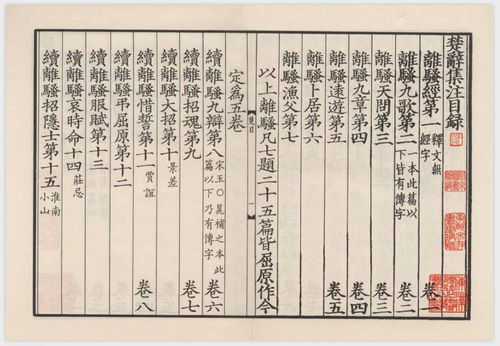 楚辭集注目録
離騷經第一 釋文無經字 卷一
離騷九歌第二 本此篇以下皆有傳字 卷二
離騷天問第三 卷三
離騷九章第四 卷四
離騷遠遊第五 卷五
離騷卜居第六
離騷漁父第七
以上離騷凡七題二十五篇皆屈原作今
定爲五卷
續離騷九辯第八 宋玉〇晁補之本此篇以下乃有傳字 卷六
續離騷招魂第九 卷七
續離騷大招第十 景差
續離騷惜誓第十一 賈誼 卷八
續離騷弔屈原第十二
續離騷服賦第十三
續離騷哀時命十四 莊忌
續離騷招隱士第十五 淮南小山